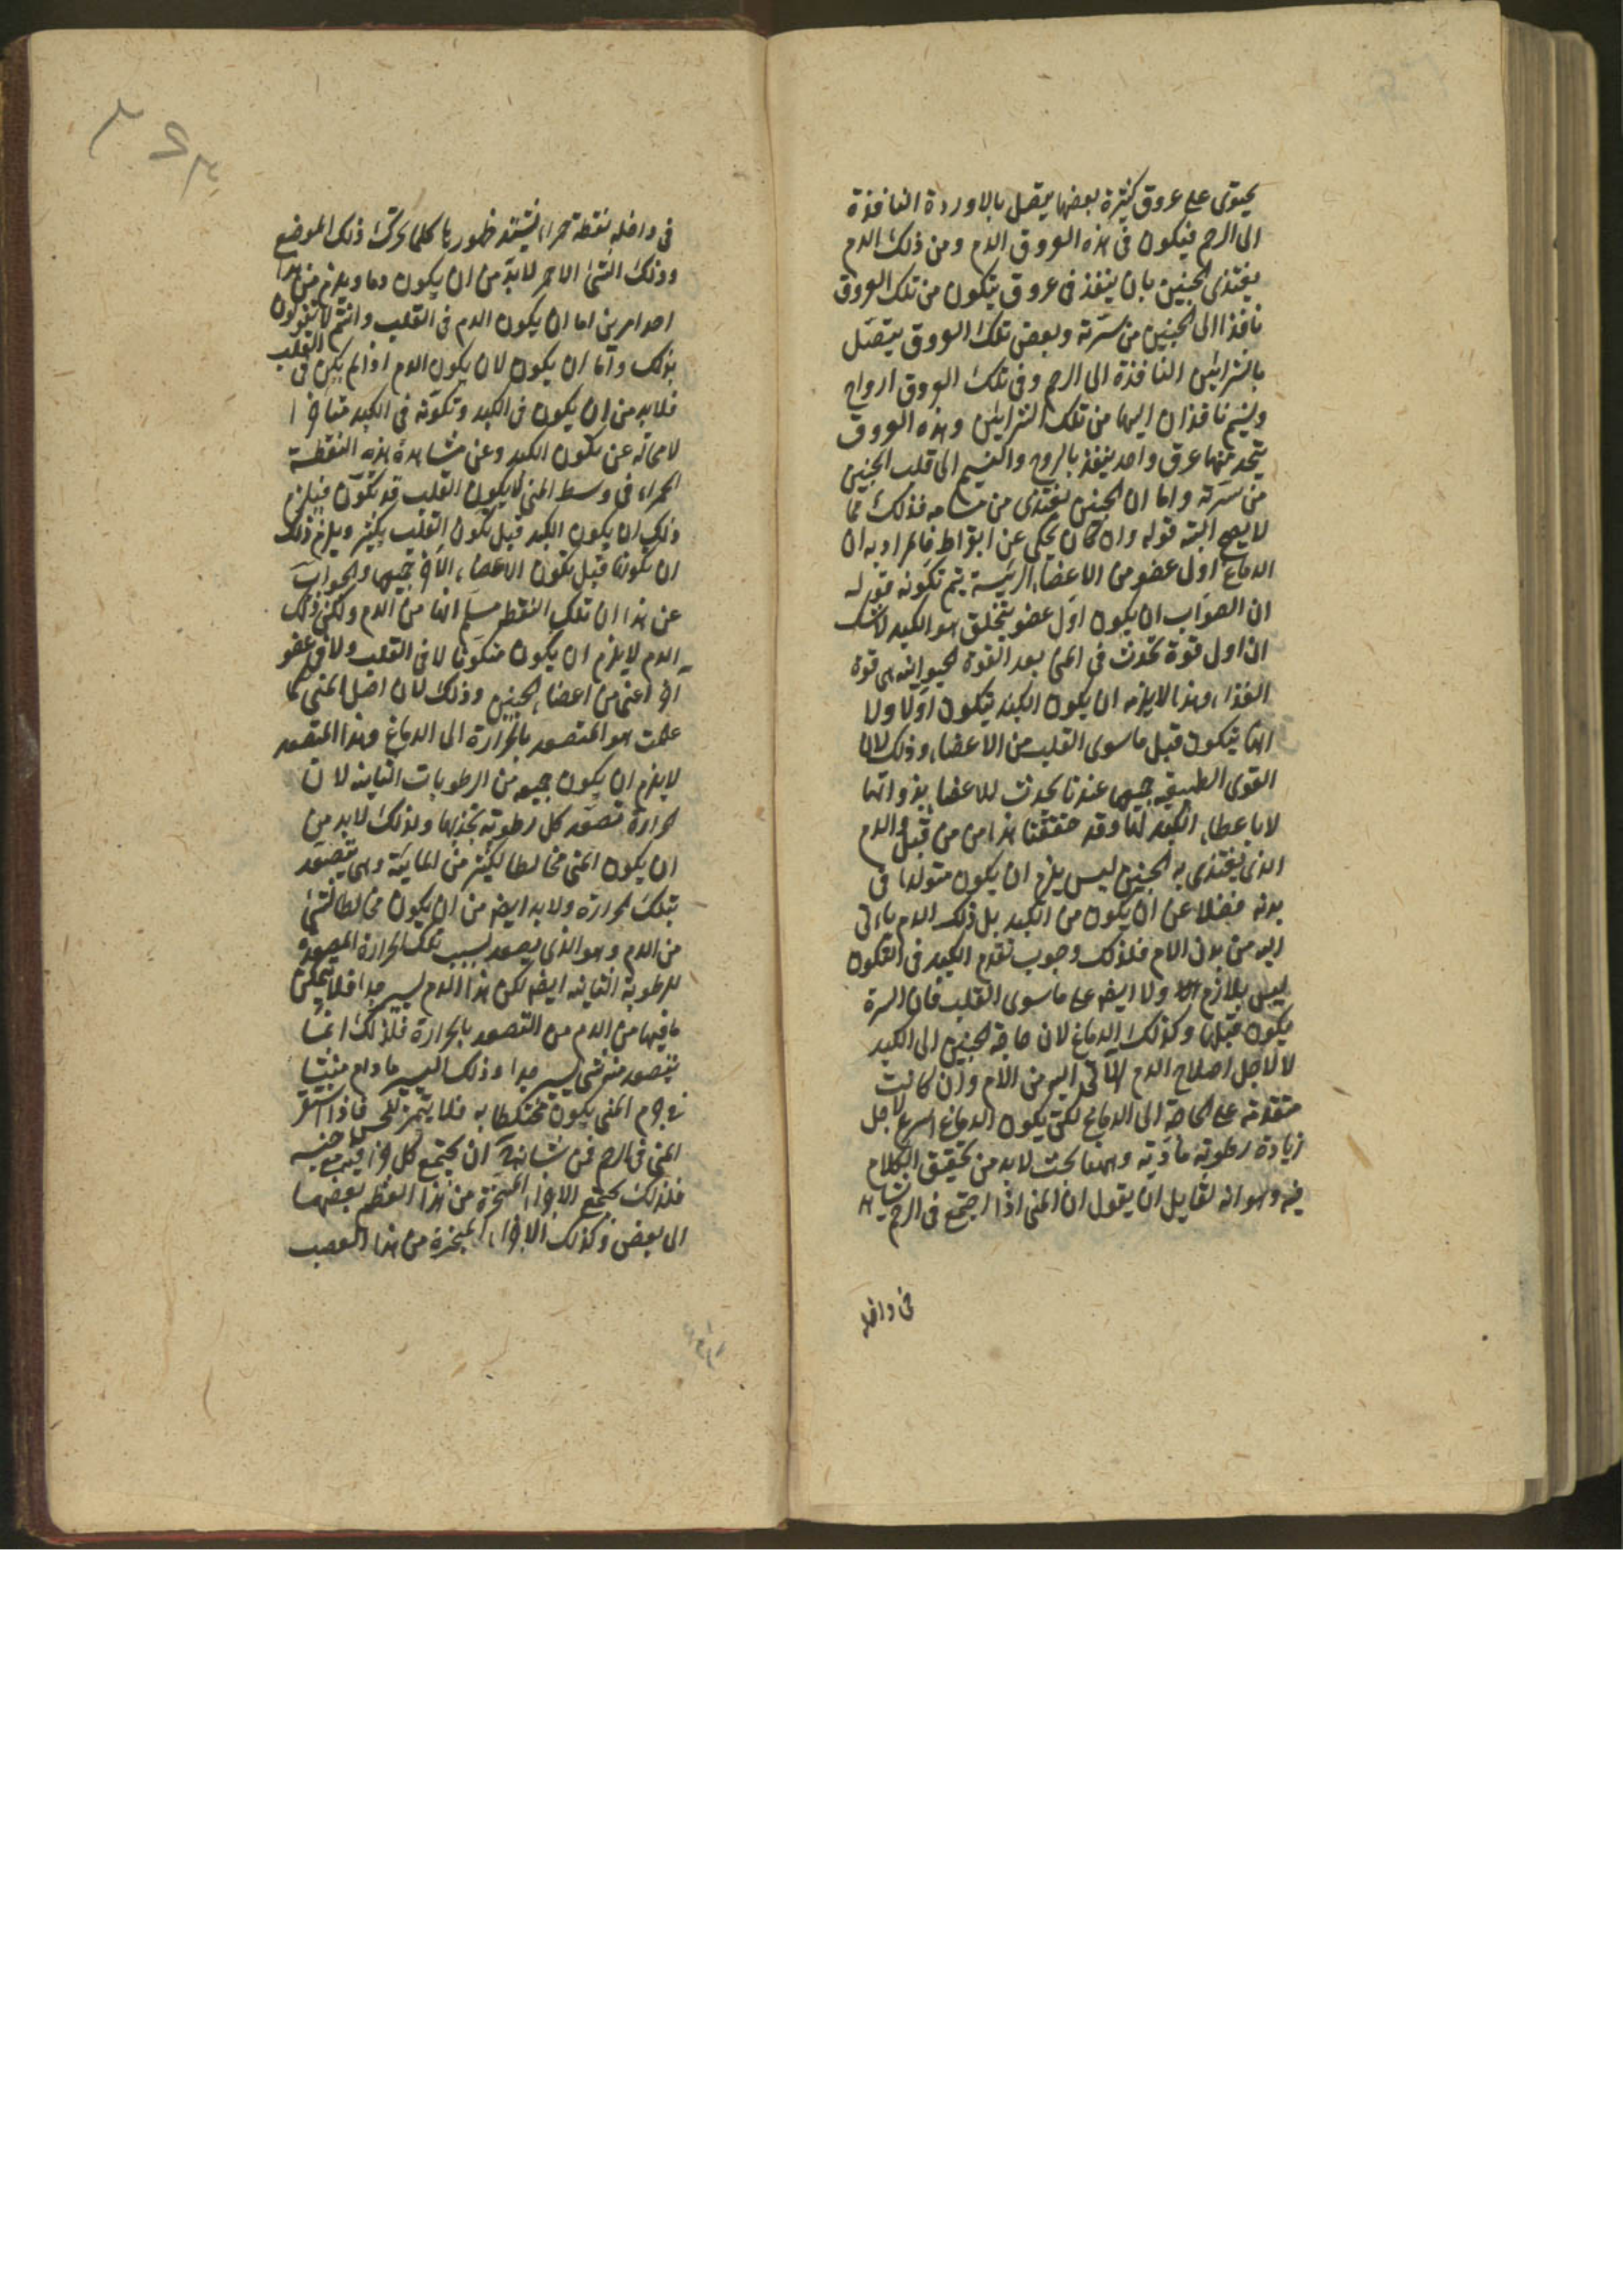 يحتوى على عروق كثيرة بعضها يتصل بالاوردة النافذة
الى الرحم فيكون فى هذه العروق الدم ومن ذلك الدم
يغتذى الجنين بان ينفذ فى عروق يتكون من تلك العروق
نافذا الى الجنين من سرّته وبعض تلك العروق يتصل
بالشرائين النافذة الى الرحم وفى تلك العروق ارواح
ونسيم نافذان اليها من تلك الشرائين وهذه العروق
يتحد منها عرق واحد ينفذ بالروح والنسيم الى قلب الجنين
من سرته واما ان الجنين يغتذى من مسامه فذلك مما
لا يصح البتة قوله وان كان يحكى عن ابقراط فالمراد به ان
الدماغ اول عضو من الاعضاء الرئيسة يتم تكونه قوله
ان الصواب ان يكون اول عضو يتخلق هو الكبد لا شك
ان اول قوة تحدث فى المنى بعد القوة الحيوانية هى قوة
الغذاء وهذا لا يلزمه ان يكون الكبد يتكون اولا ولا
انها يتكون قبل ماسوى القلب من الاعضاء وذلك لان
القوى الطبيعية جميعها عندنا تحدث للاعضاء بذواتها
لا باعطاء الكبد لها وقد حققنا هذا من من قبل والدم
الذى يغتذى به الجنين ليس يلزم ان يكون متولدا فى
بدنه فضلا عن ان يكون من الكبد بل ذلك الدم ياتى
اليه من بدن الام فلذلك وجوب تقدم الكبد فى التكون
ليس بلازم ولا ايضا على ماسوى القلب فان السرة
يكون قبلها وكذلك الدماغ لان حاجة الجنين الى الكبد
لا لاجل اصلاح الدم الآتى اليه من الام وان كانت
متقدمة على الحاجة الى الدماغ لكن يكون الدماغ اسرع لاجل
زيادة رطوبة مادته وههنا بحث لا بد من تحقيق الكلام
فيه وهو انه لقايل ان يقول ان المنى اذا اجتمع فى الرحم يشاهد
فى داخله
فى داخله نقطة حمراء يشتد ظهورها كلما تحركت ذلك الموضع
وذلك الشئ الاحمر لا بد من ان يكون دما ويلزم من هذا
احد امرين اما ان يكون الدم فى القلب وانتم لا تقولون
بذلك واما ان يكون لان يكون الدم اذا لم يكن فى القلب
فلا بد من ان يكون فى الكبد وتكونه فى الكبد متاخرا
لا محالة عن تكون الكبد وعن مشاهدة هذه النقطة
الحمراء فى وسط المنى لا يكون القلب قد تكون فيلزم
ذلك ان يكون الكبد قبل تكون القلب بكثير ويلزم ذلك
ان تكونها قبل تكون الاعضاء الاخر جميعها والجواب
عن هذا ان تلك النقطة مسلم انها من الدم ولكن ذلك
الدم لا يلزم ان يكون متكونا لا فى القلب ولا فى عضو
آخر اعنى من اعضاء الجنين وذلك لان اصل المنى كما
علمت هو المتصعد بالحرارة الى الدماغ وهذا المتصعد
لا يلزم ان يكون جميعه من الرطوبات الثانية لان
الحرارة تصعد كل رطوبة تجذبها ولذلك لا بد من
ان يكون المنى مخالطا لكثير من المائية وهى تتصعد
بتلك الحرارة ولا بد ايضا من ان يكون مخالطا لشئ
من الدم وهو الذى يصعد بسبب تلك الحرارة المصعدة
للرطوبة الثانية ايضا لكن هذا الدم يسير جدا فلا يتمكن
ما فيها من الدم من التصعد بالحرارة فلذلك انما
يتصعد منه شئ يسير جدا وذلك اليسير ما دام منبثا
فى جرم المنى يكون مختلطا به فلما يتميز للحس فاذا استقر
المنى فى الرحم فمن شانه ان يجتمع كل اجزا فيه من جنسه
فلذلك يجتمع الاجزاء المتبخرة من هذا العظم بعضها
الى بعض وكذلك الاجزاء المتبخرة من هذا العصب